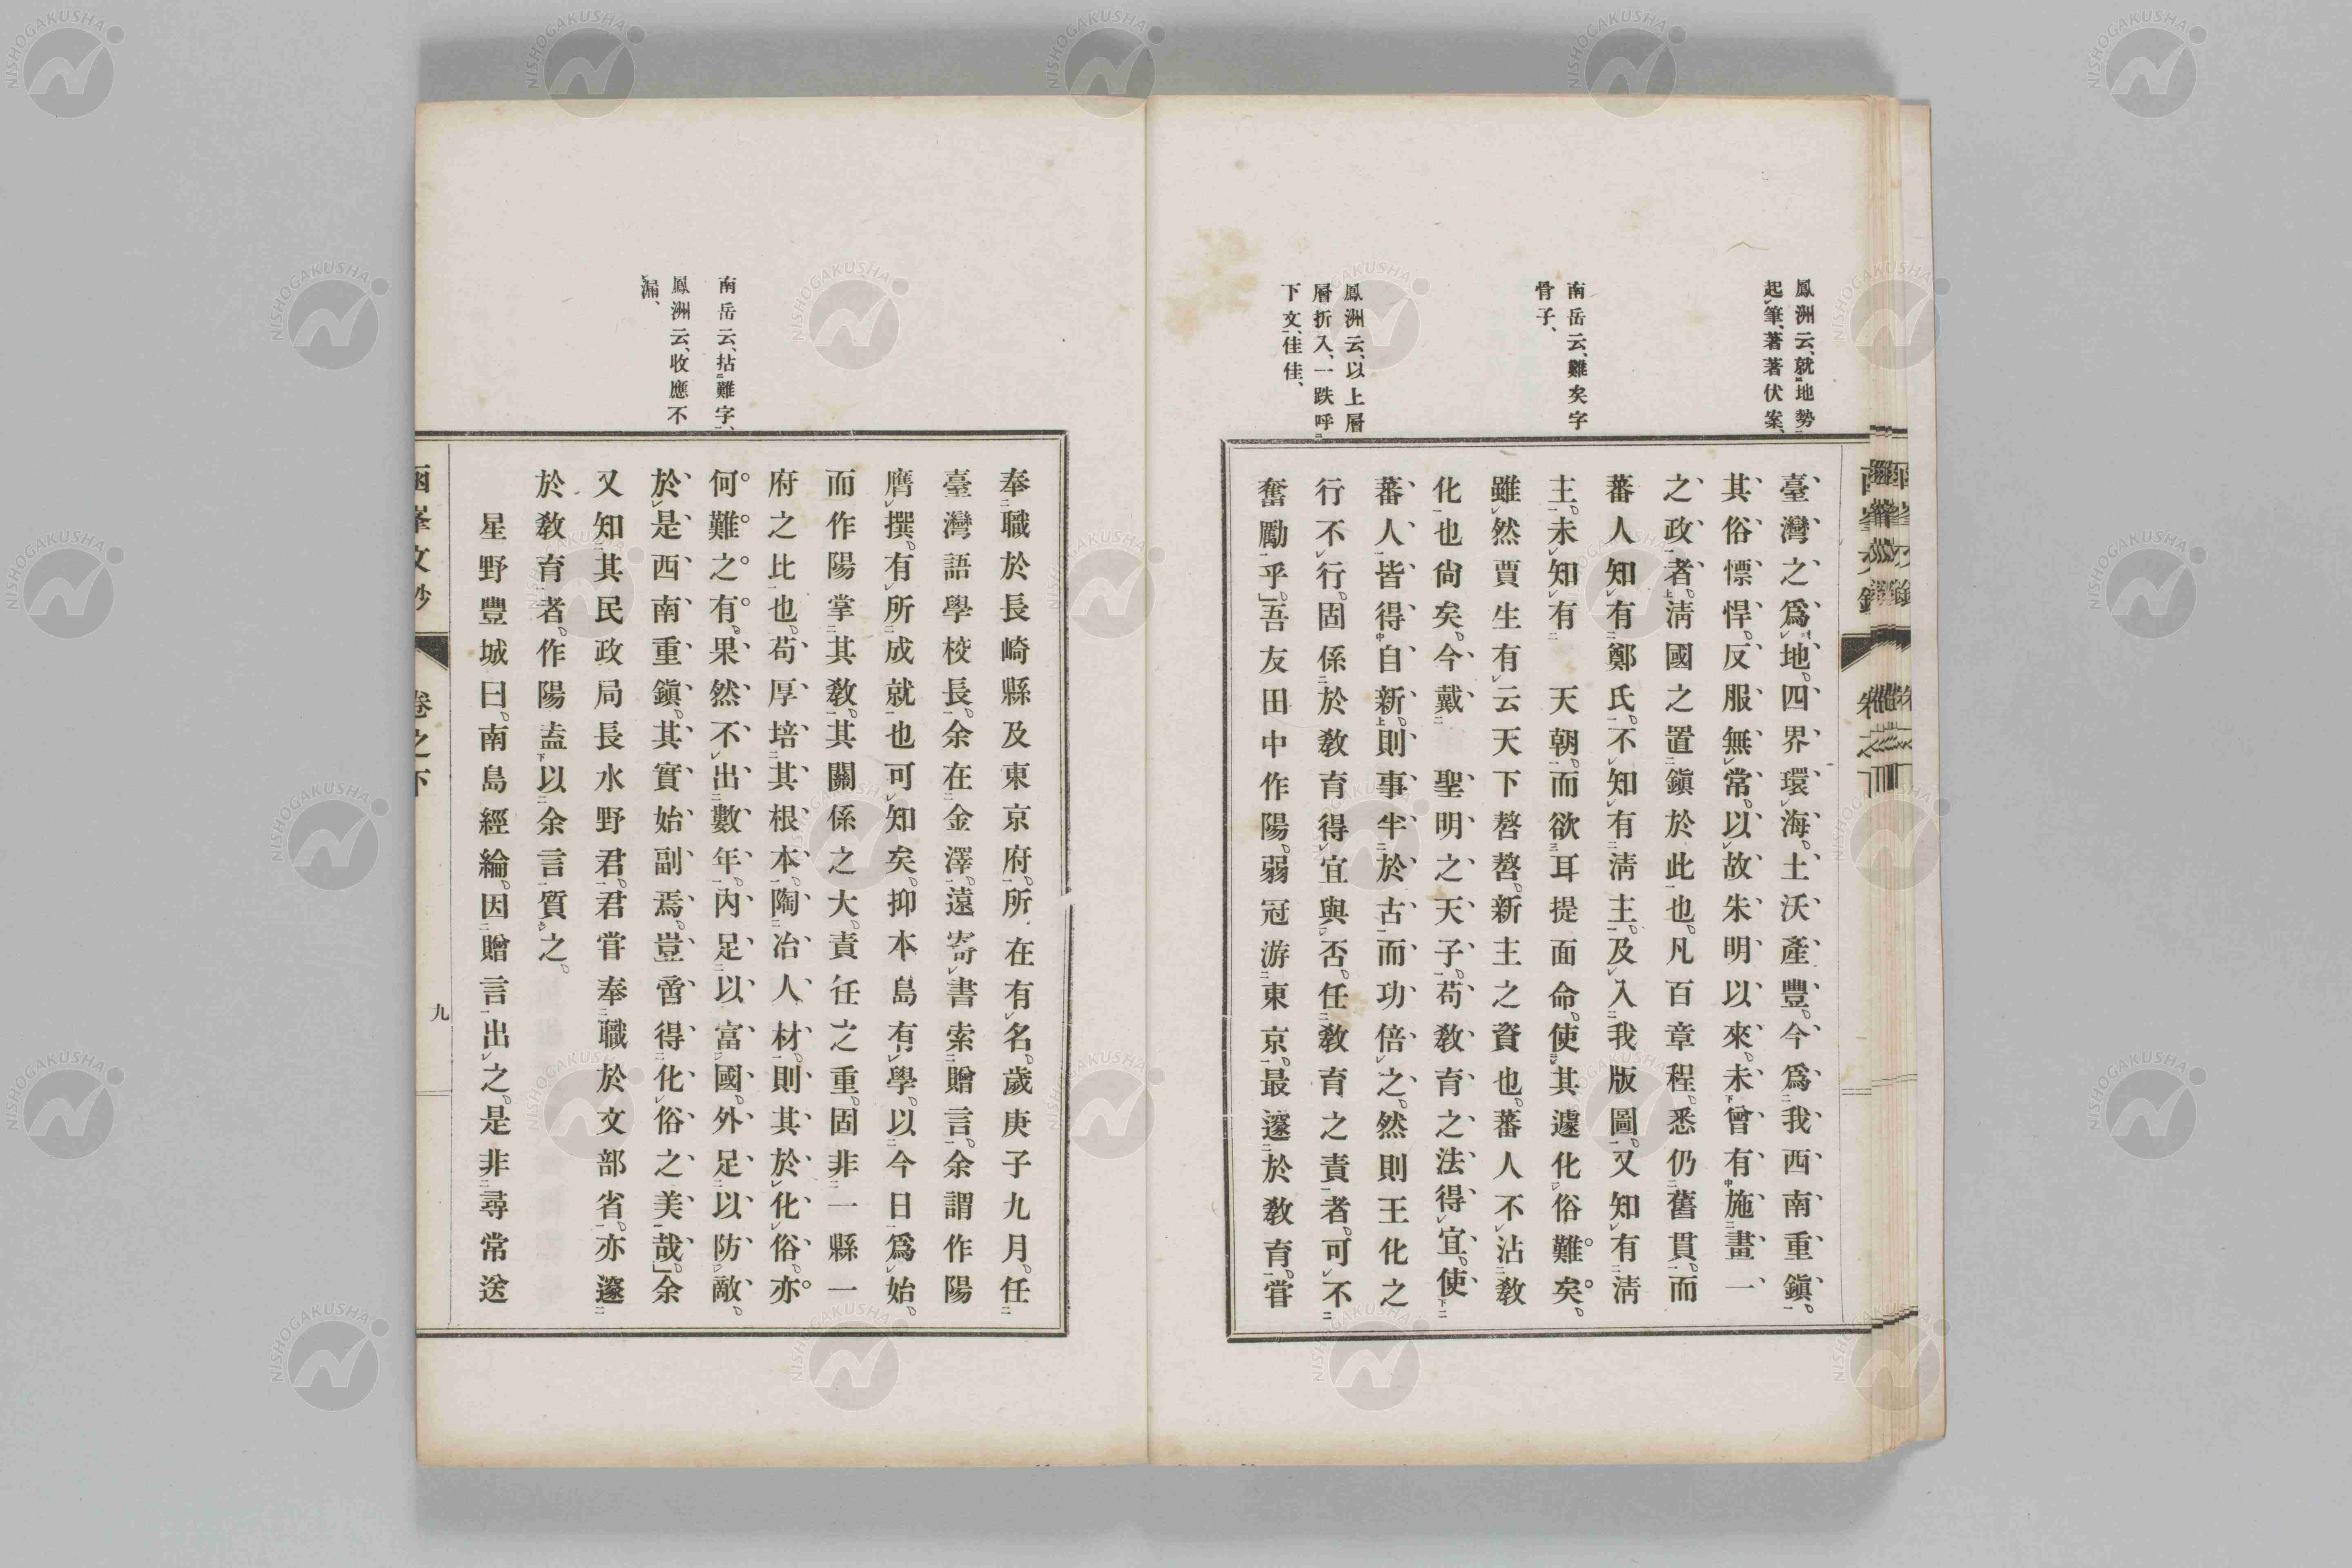 鳳洲云、就地勢
起筆、著著伏案、
南岳云、難矣字
骨子、
鳳洲云、以上層
層折入、一跌呼
下文、佳佳、
臺灣之爲地。四界環海。土沃產豐。今爲我西南重鎭。
其俗慓悍。反服無常。以故朱明以來。未曾有施畫一
之政者。淸國之置鎭於此也。凡百章程。悉仍舊貫。而
蕃人知有鄭氏。不知有淸主。及入我版圖。又知有淸
主。未知有　天朝。而欲耳提面命。使其遽化俗難矣。
雖然賈生有云天下嗸嗸。新主之資也。蕃人不沾敎
化也尙矣。今戴　聖明之天子。苟敎育之法得宜。使
蕃人皆得自新。則事半於古而功倍之。然則王化之
行不行。固係於敎育得宜與否。任敎育之責者。可不
奮勵乎」。吾友田中作陽。弱冠游東京。最邃於敎育。甞
南岳云、拈難字、
鳳洲云、收應不
漏、
奉職於長崎縣及東京府。所在有名。歲庚子九月。任
臺灣語學校長。余在金澤。遠寄書索贈言。余謂作陽
膺撰。有所成就也可知矣。抑本島有學。以今日爲始。
而作陽掌其敎。其關係之大。責任之重。固非一縣一
府之比也。苟厚培其根本。陶冶人材。則其於化俗。亦
何難之有。果然不出數年。內足以富國。外足以防敵。
於是西南重鎭。其實始副焉。豈啻得化俗之美哉」。余
又知其民政局長水野君。君甞奉職於文部省。亦邃
於敎育者。作陽盍以余言質之。
星野豐城曰。南島經綸。因贈言出之。是非尋常送
卷之下
九
NISHOGAKUSHA